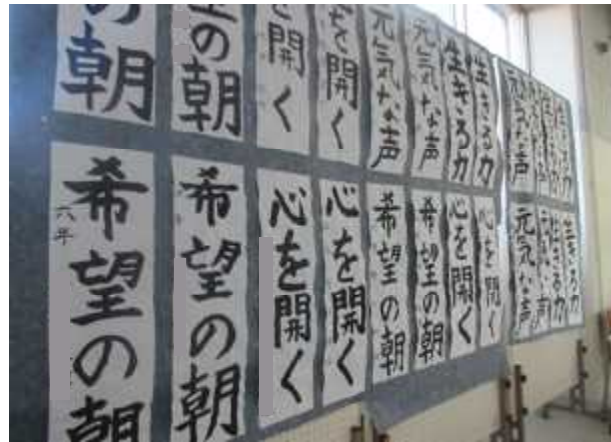 の朝
望の朝
を開く
心を開く
元気な声
元気な声
生きる力
生きる力
元気な声
生きる力
生きる力
希望の朝
六年
希望の朝
心を開く
心を開く
希望の朝
希望の朝
心を開く
心を開く
元気な声
元気な声
生きる力
生きる力